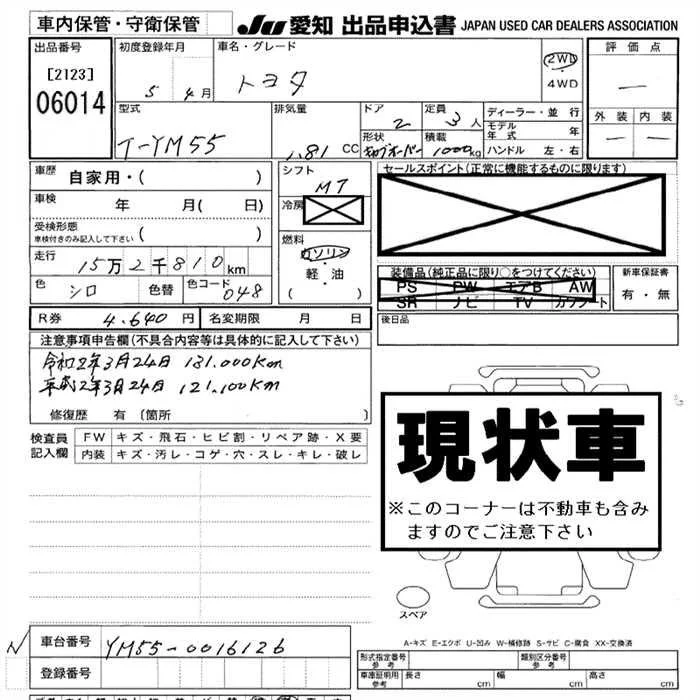 車内保管・守衛保管 JU 愛知 出品申込書 JAPAN USED CAR DEALERS ASSOCIATION
出品番号 初度登録年月 車名・グレード 評価点
[2123] 5年4月 トヨタ 2WD・4WD
06014 外装 内装
型式 排気量 ドア 定員 ディーラー・並行
T-YM55 1.81 CC 2 3人 モデル年式 年
形状 積載 ハンドル 左・右
キャブオーバー 1000kg
車歴 自家用・( ) シフト セールスポイント(正常に機能するものに限ります)
MT
車検 年 月( 日) 冷房
受検形態
車検付きのみ記入して下さい ( ) 燃料
ガソリン・
走行 15万2千810km 軽・油 装備品(純正品に限り○をつけてください) 新車保証書
( ) PS PW エアB AW 有・無
色 シロ 色替 色コード 048 SR ナビ TV カワシート
R券 4.640円 名変期限 月 日 後日品
注意事項申告欄(不具合内容等は具体的に記入して下さい)
令和2年3月24日 131.000Km
平成2年3月24日 121.100Km
修復歴 有 〔箇所 〕
検査員 FW キズ・飛石・ヒビ割・リペア跡・X要
記入欄 内装 キズ・汚レ・コゲ・穴・スレ・キレ・破レ
現状車
※このコーナーは不動車も含み
ますのでご注意下さい
スペア
A-キズ E-エクボ U-凹み W-補修跡 S-サビ C-腐食 XX-交換済
車台番号 YM55-0016126
形式指定番号 参考 類別区分番号 参考
登録番号 車庫証明用 参考 長さ cm 幅 cm 高さ cm